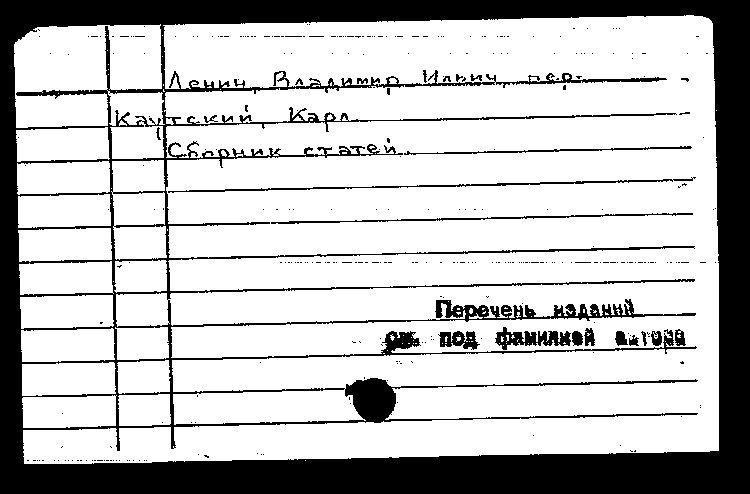 Ленин, Владимир Ильич, пер.
Каутский, Карл.
Сборник статей.
Перечень изданий
см. под фамилией автора